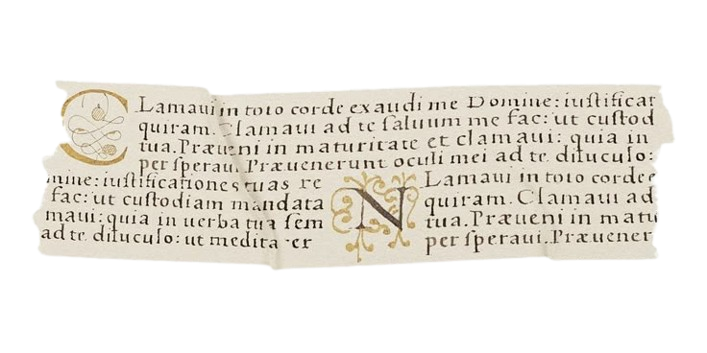 C Lamaui in toto corde exaudi me Domine: iustificat
quiram. Clamaui ad te saluum me fac: ut custod
tua. Præueni in maturitate et clamaui: quia in
per speraui. Præuenerunt oculi mei ad te diluculo:
mine: iustificationes tuas re
fac: ut custodiam mandata
maui: quia in uerba tua sem
ad te diluculo: ut medita er
N Lamaui in toto corde e
quiram. Clamaui ad
tua. Præueni in matu
per speraui. Præuener